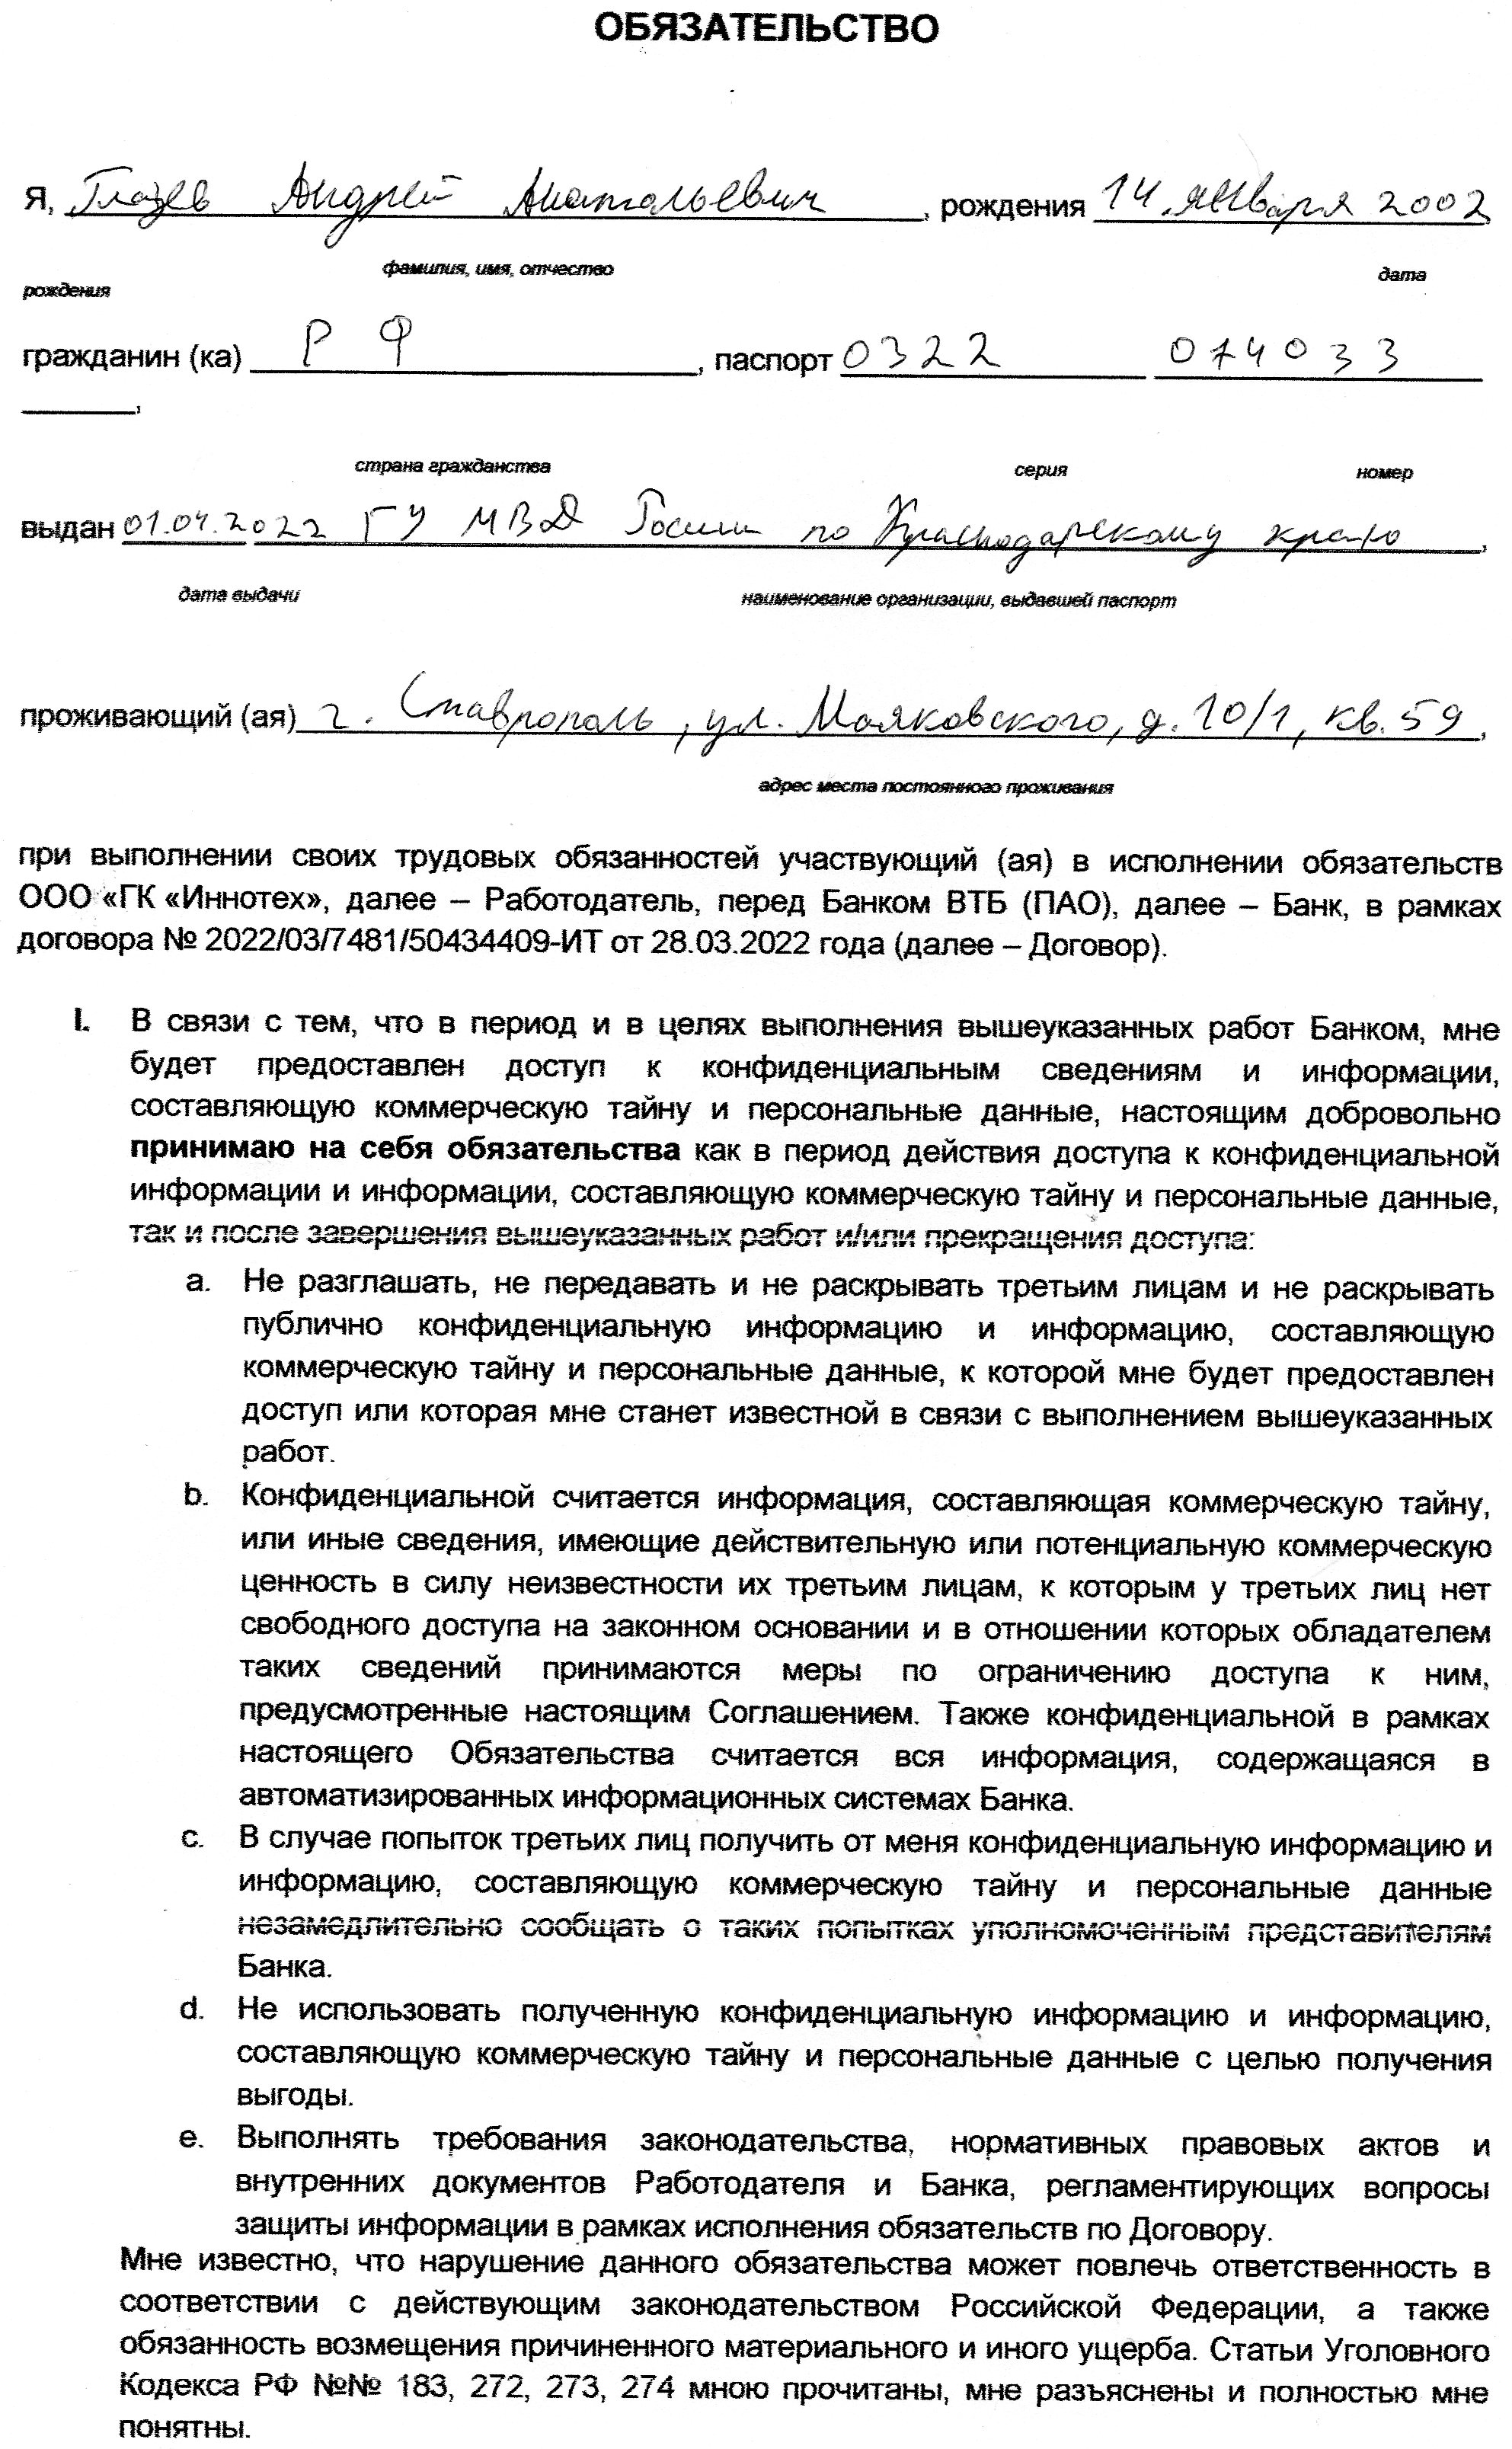 ОБЯЗАТЕЛЬСТВО
Я, Глазев Андрей Анатольевич, рождения 14 января 2002,
фамилия, имя, отчество дата
рождения
гражданин (ка) РФ, паспорт 0322 074033
,
страна гражданства серия номер
выдан 01.04.2022 ГУ МВД России по Краснодарскому краю,
дата выдачи наименование организации, выдавшей паспорт
проживающий (ая) г. Ставрополь, ул. Маяковского, д. 10/1, кв. 59,
адрес места постоянного проживания
при выполнении своих трудовых обязанностей участвующий (ая) в исполнении обязательств
ООО «ГК «Иннотех», далее – Работодатель, перед Банком ВТБ (ПАО), далее – Банк, в рамках
договора № 2022/03/7481/50434409-ИТ от 28.03.2022 года (далее – Договор).
I. В связи с тем, что в период и в целях выполнения вышеуказанных работ Банком, мне
будет предоставлен доступ к конфиденциальным сведениям и информации,
составляющую коммерческую тайну и персональные данные, настоящим добровольно
принимаю на себя обязательства как в период действия доступа к конфиденциальной
информации и информации, составляющую коммерческую тайну и персональные данные,
так и после завершения вышеуказанных работ и/или прекращения доступа:
a. Не разглашать, не передавать и не раскрывать третьим лицам и не раскрывать
публично конфиденциальную информацию и информацию, составляющую
коммерческую тайну и персональные данные, к которой мне будет предоставлен
доступ или которая мне станет известной в связи с выполнением вышеуказанных
работ.
b. Конфиденциальной считается информация, составляющая коммерческую тайну,
или иные сведения, имеющие действительную или потенциальную коммерческую
ценность в силу неизвестности их третьим лицам, к которым у третьих лиц нет
свободного доступа на законном основании и в отношении которых обладателем
таких сведений принимаются меры по ограничению доступа к ним,
предусмотренные настоящим Соглашением. Также конфиденциальной в рамках
настоящего Обязательства считается вся информация, содержащаяся в
автоматизированных информационных системах Банка.
c. В случае попыток третьих лиц получить от меня конфиденциальную информацию и
информацию, составляющую коммерческую тайну и персональные данные
незамедлительно сообщать о таких попытках уполномоченным представителям
Банка.
d. Не использовать полученную конфиденциальную информацию и информацию,
составляющую коммерческую тайну и персональные данные с целью получения
выгоды.
e. Выполнять требования законодательства, нормативных правовых актов и
внутренних документов Работодателя и Банка, регламентирующих вопросы
защиты информации в рамках исполнения обязательств по Договору.
Мне известно, что нарушение данного обязательства может повлечь ответственность в
соответствии с действующим законодательством Российской Федерации, а также
обязанность возмещения причиненного материального и иного ущерба. Статьи Уголовного
Кодекса РФ №№ 183, 272, 273, 274 мною прочитаны, мне разъяснены и полностью мне
понятны.